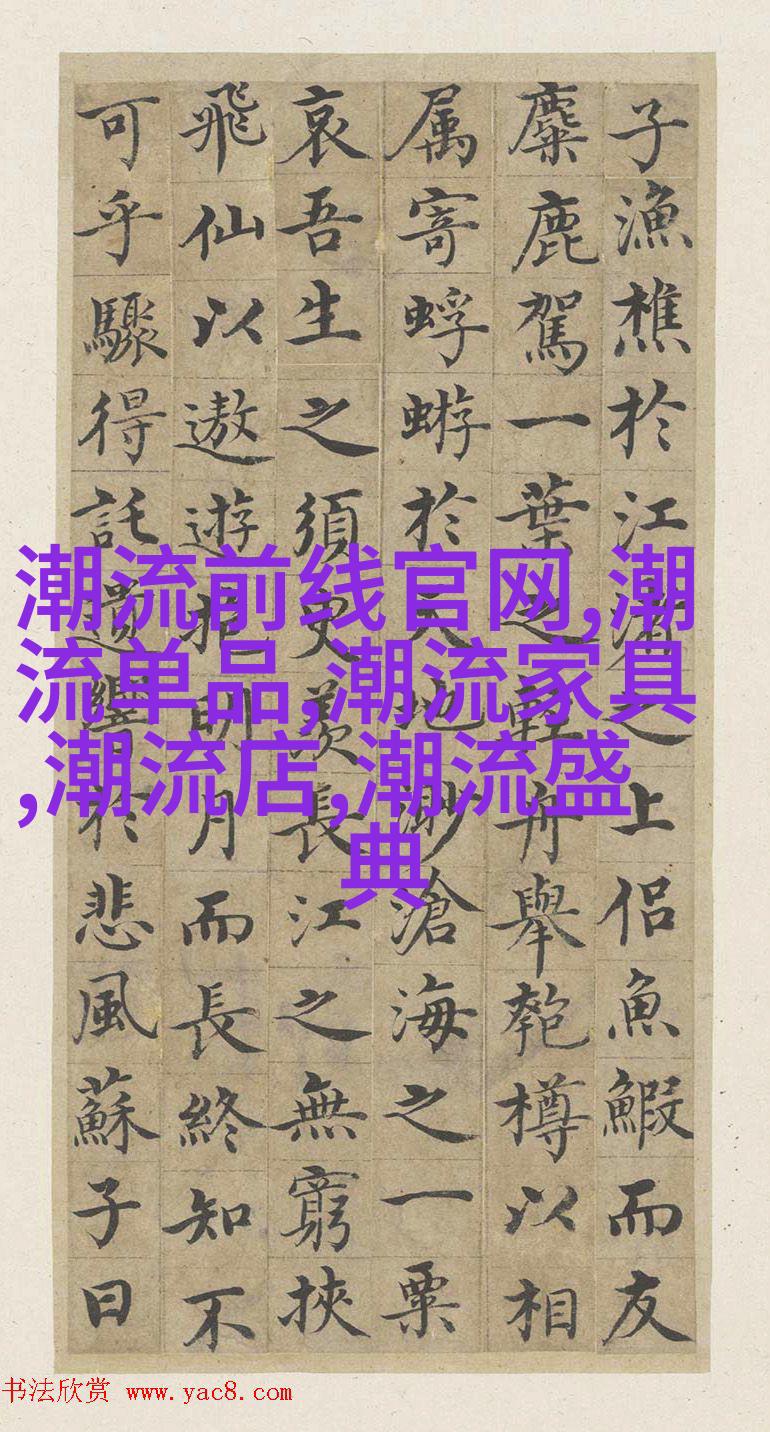 子漁樵於江渚之上侶魚鰕而友
麋鹿駕一葉之輕舟舉匏樽以相
属寄蜉蝣於天地渺滄海之一粟
哀吾生之須臾羨長江之無窮挾
飛仙以遨遊抱明月而長終知不
可乎驟得託遺響於悲風蘇子曰
潮流前线官网,潮
流单品,潮流家具
,潮流店,潮流盛
典
书法欣赏 www.yac8.com